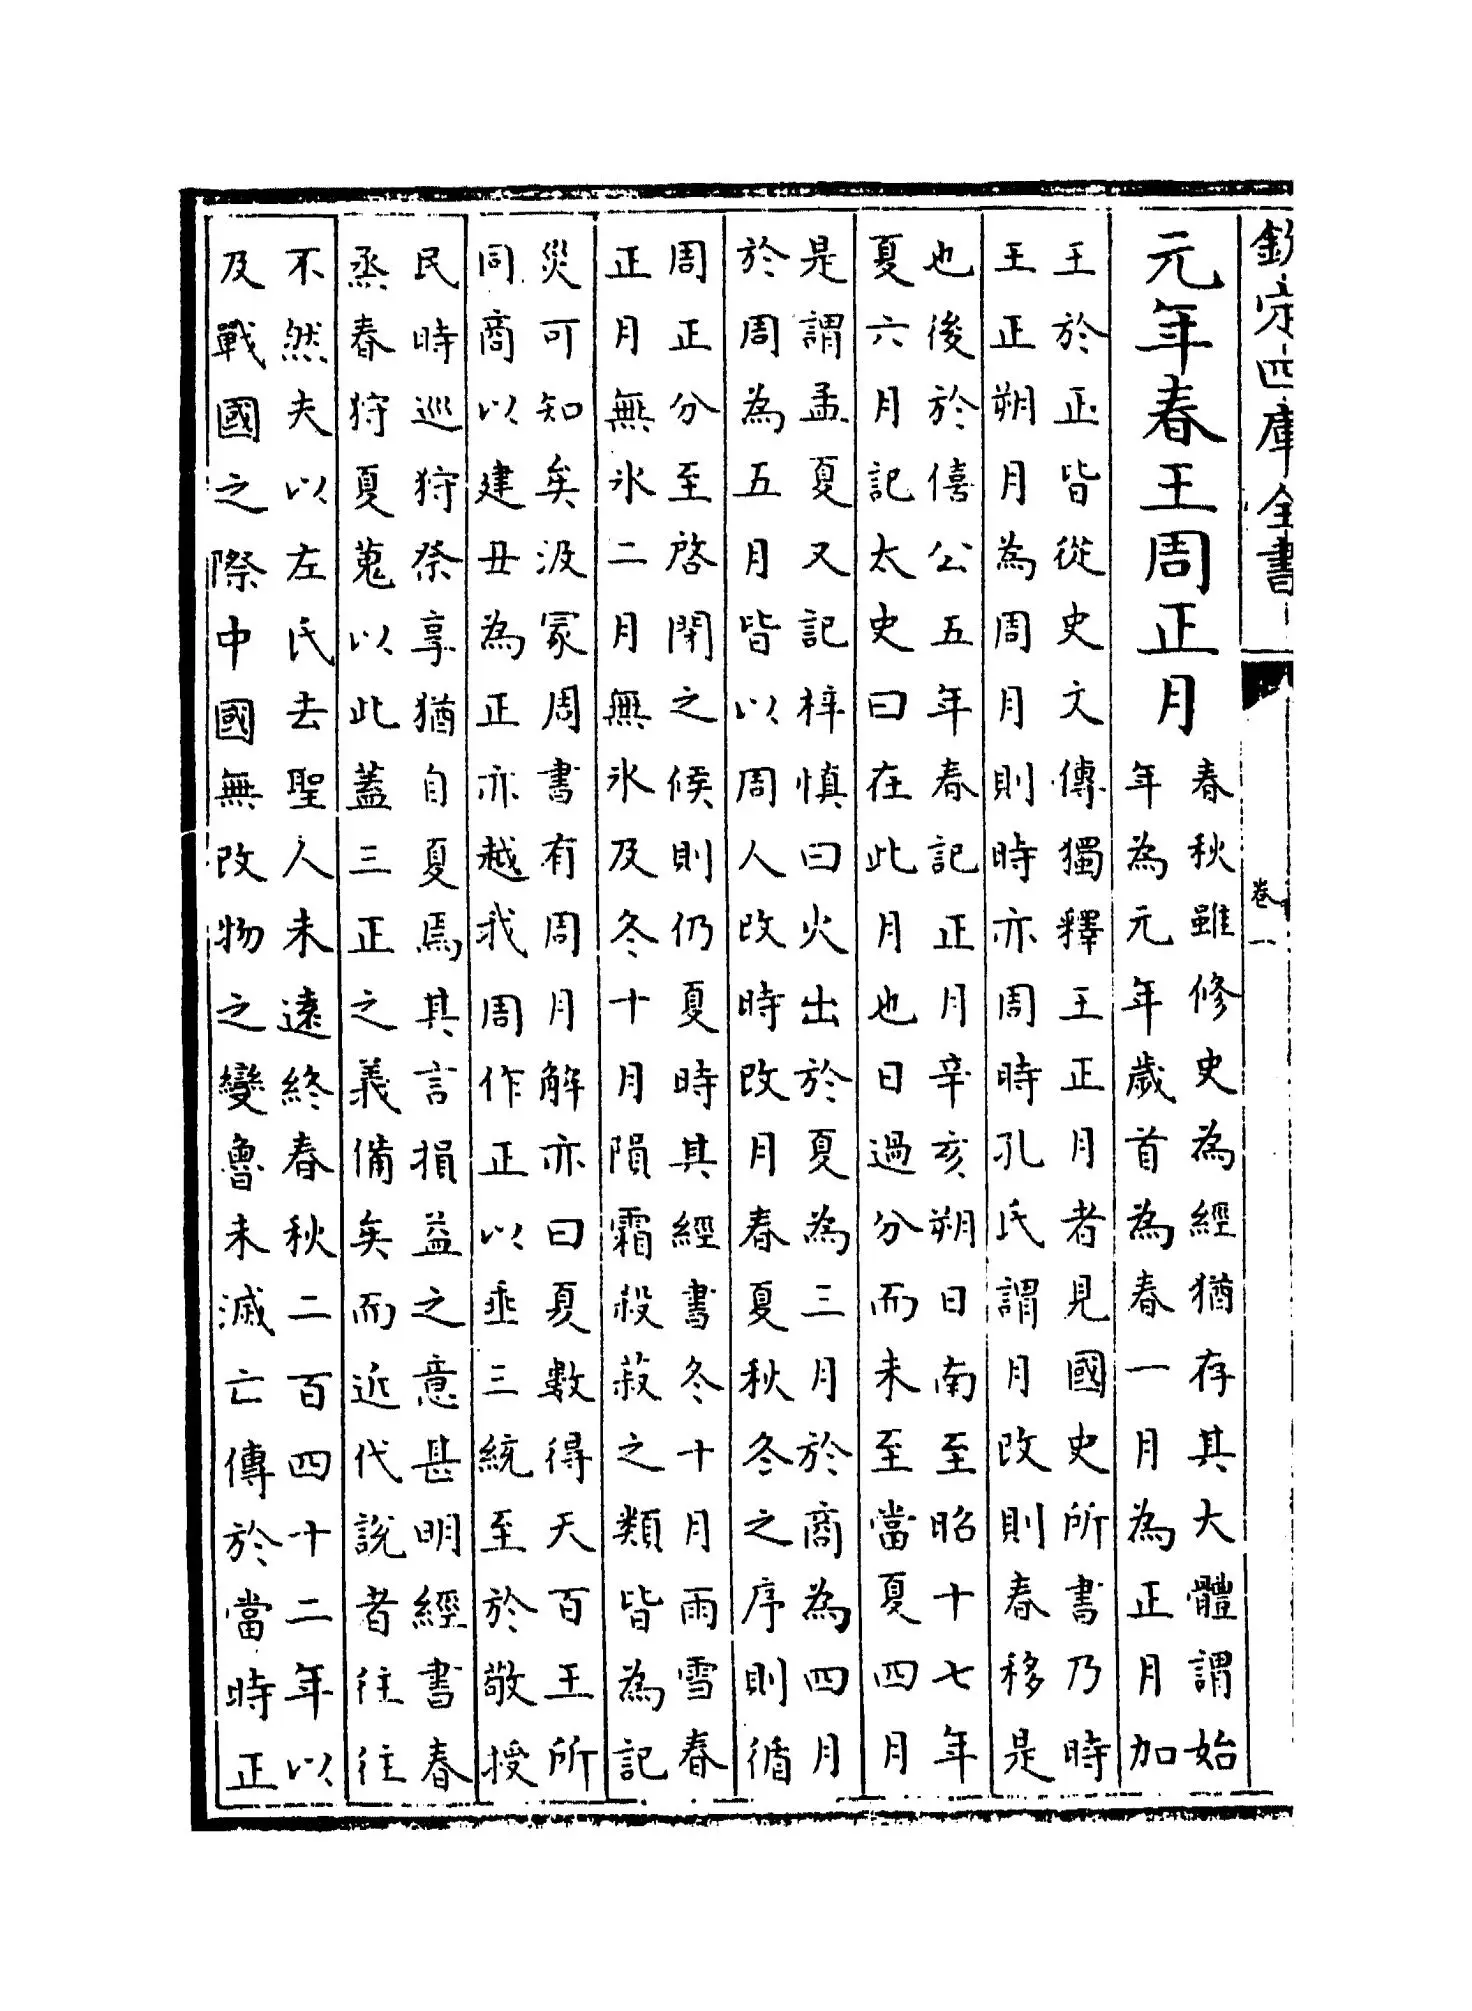 欽定四庫全書
卷一
元年春王周正月
春秋雖修史為經猶存其大體謂始
年為元年歲首為春一月為正月加
王於正皆從史文傳獨釋王正月者見國史所書乃時
王正朔月為周月則時亦周時孔氏謂月改則春移是
也後於僖公五年春記正月辛亥朔日南至昭十七年
夏六月記太史曰在此月也日過分而未至當夏四月
是謂孟夏又記梓慎曰火出於夏為三月於商為四月
於周為五月皆以周人改時改月春夏秋冬之序則循
周正分至啓閉之候則仍夏時其經書冬十月雨雪春
正月無氷二月無氷及冬十月隕霜殺菽之類皆為記
災可知矣汲冢周書有周月解亦曰夏數得天百王所
同商以建丑為正亦越我周作正以垂三統至於敬授
民時巡狩烝享猶自夏焉其言損益之意甚明經書春
烝春狩夏蒐以此蓋三正之義備矣而近代說者往往
不然夫以左氏去聖人未遠終春秋二百四十二年以
及戰國之際中國無改物之變魯未滅亡傳於當時正